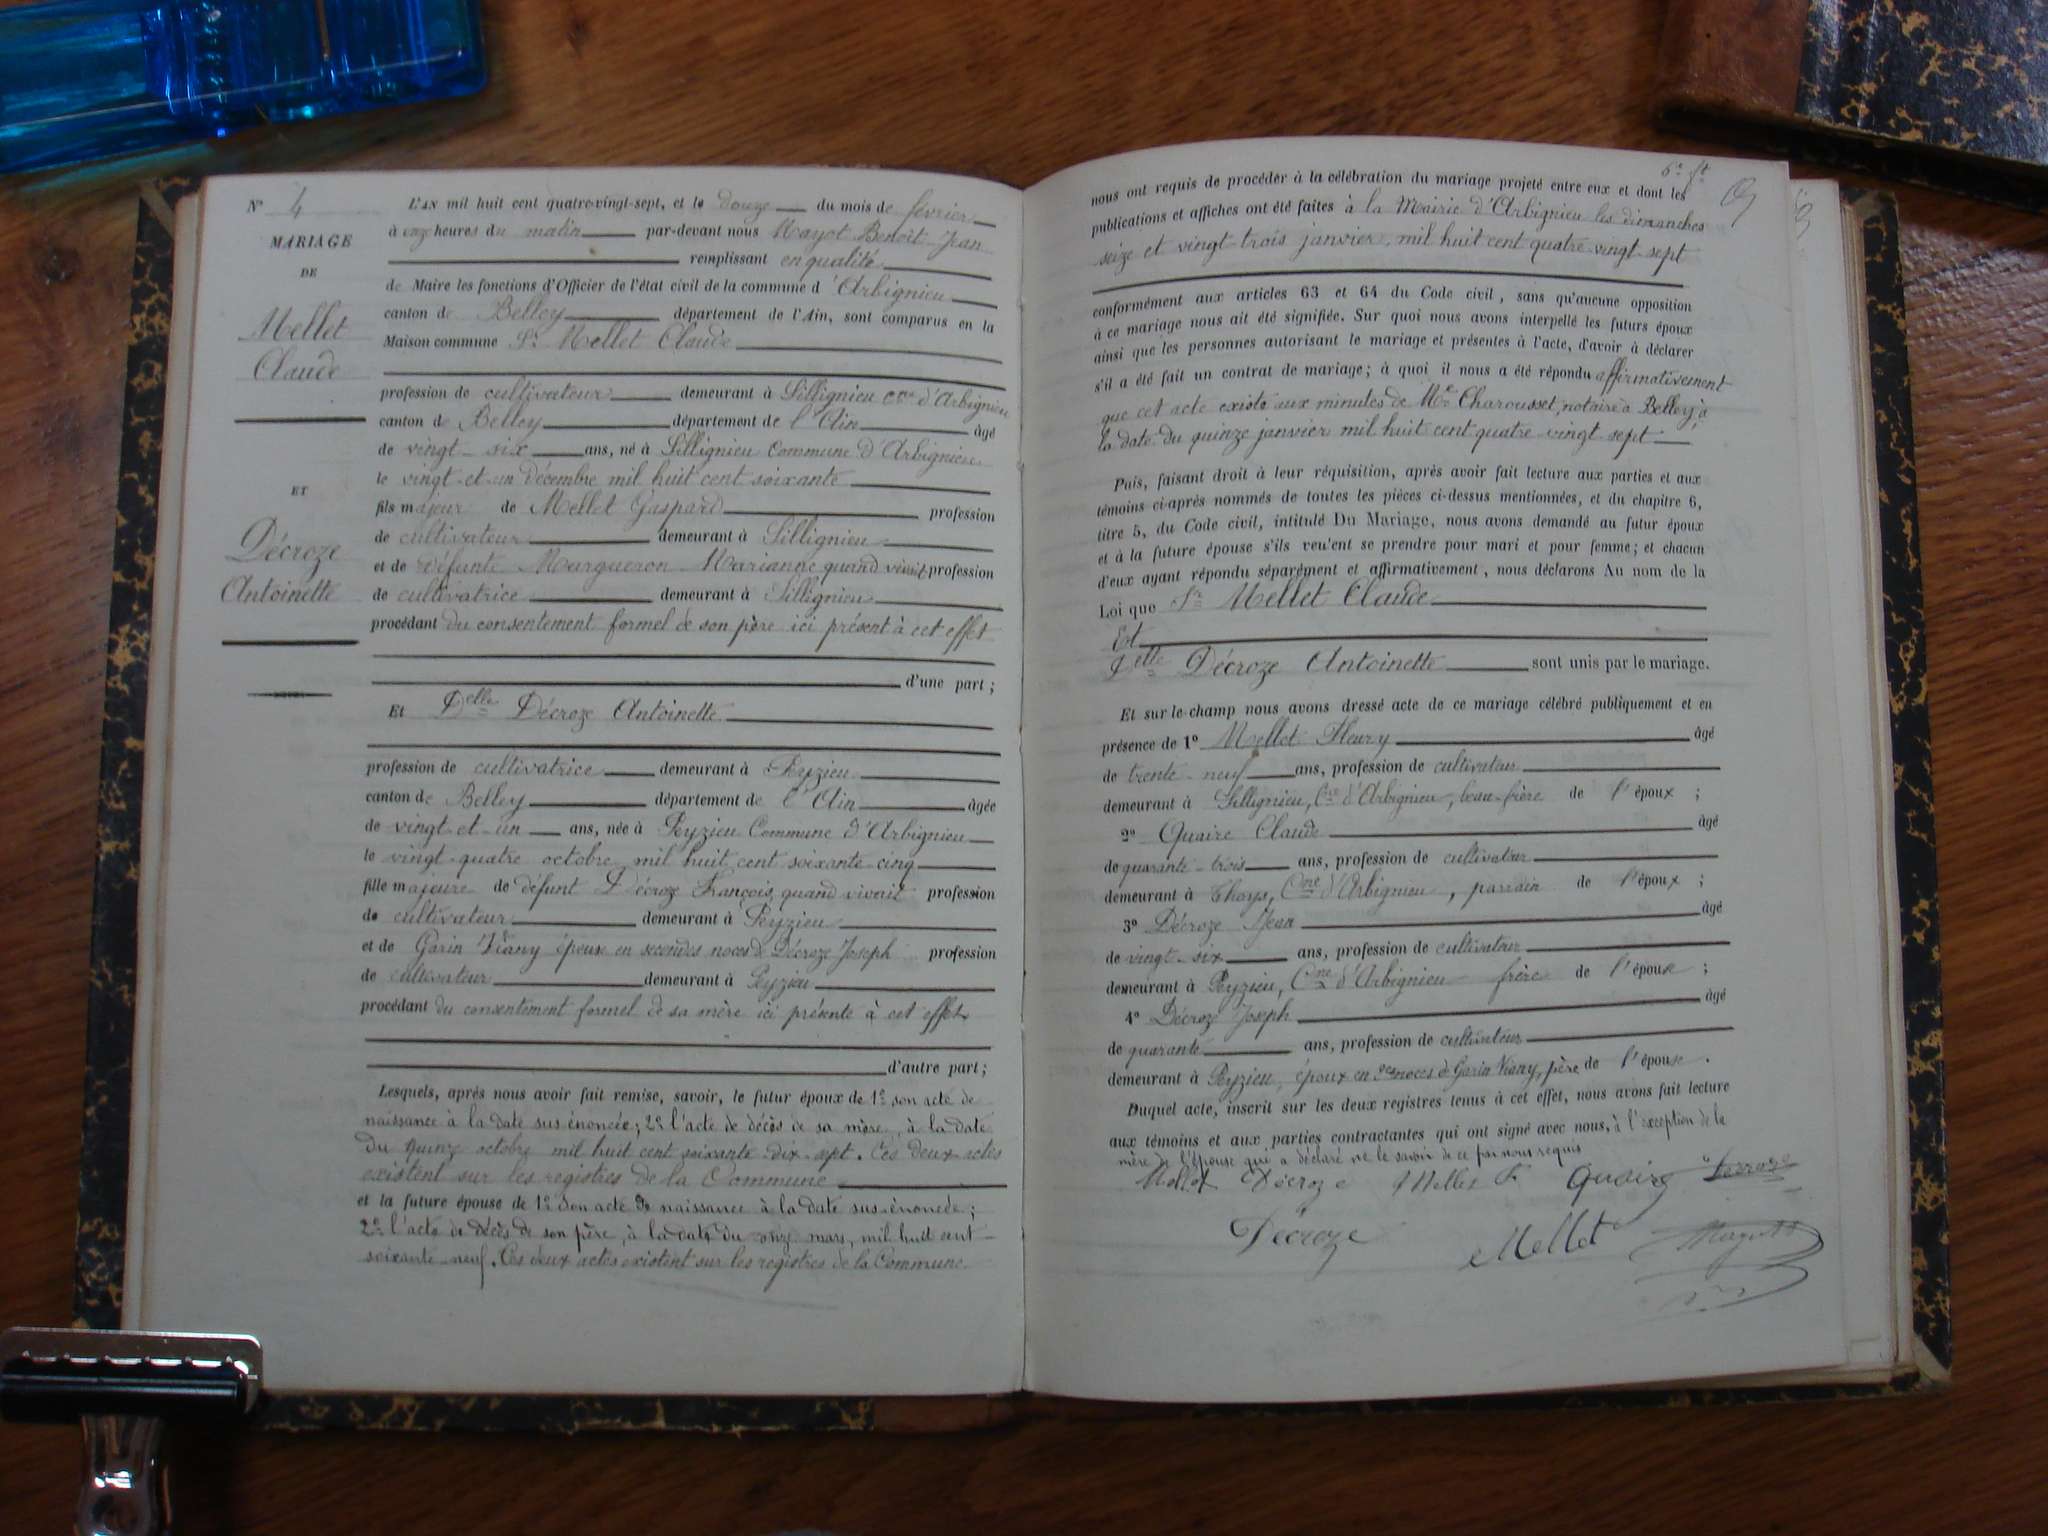 N° 4
MARIAGE
DE
Mellet
Claude
ET
Décroze
Antoinette
L'AN mil huit cent quatre-vingt-sept, et le douze du mois de février
à onze heures du matin par-devant nous Mayot Benoît Jean
remplissant en qualité
de Maire les fonctions d'Officier de l'état civil de la commune d'Arbignieu
canton de Belley département de l'Ain, sont comparus en la
Maison commune Sr Mellet Claude
profession de cultivateur demeurant à Sillignieu cne d'Arbignieu
canton de Belley département de l'Ain âgé
de vingt-six ans, né à Sillignieu Commune d'Arbignieu
le vingt-et-un Décembre mil huit cent soixante
fils majeur de Mellet Gaspard profession
de cultivateur demeurant à Sillignieu
et de défunte Margueron Marianne quand vivait profession
de cultivatrice demeurant à Sillignieu
procédant du consentement formel de son père ici présent à cet effet
d'une part ;
Et Delle Décroze Antoinette
profession de cultivatrice demeurant à Peyzieu
canton de Belley département de l'Ain âgée
de vingt-et-un ans, née à Peyzieu Commune d'Arbignieu
le vingt-quatre octobre mil huit cent soixante cinq
fille majeure de défunt Décroze François, quand vivait profession
de cultivateur demeurant à Peyzieu
et de Garin Viany époux en secondes noces de Décroze Joseph profession
de cultivateur demeurant à Peyzieu
procédant du consentement formel de sa mère ici présente à cet effet
d'autre part ;
Lesquels, après nous avoir fait remise, savoir, le futur époux de 1° son acte de
naissance à la date sus énoncée; 2° l'acte de décès de sa mère, à la date
du quinze octobre mil huit cent soixante-dix-sept. Ces deux actes
existent sur les registres de la Commune
et la future épouse de 1° Son acte de naissance à la date sus-énoncée;
2° l'acte de décès de son père, à la date du onze mars, mil huit cent
soixante-neuf. Ces deux actes existent sur les registres de la Commune.
6e ft
nous ont requis de procéder à la célébration du mariage projeté entre eux et dont les
publications et affiches ont été faites à la Mairie d'Arbignieu les dimanches
seize et vingt trois janvier, mil huit cent quatre-vingt-sept
conformément aux articles 63 et 64 du Code civil, sans qu'aucune opposition
à ce mariage nous ait été signifiée. Sur quoi nous avons interpellé les futurs époux
ainsi que les personnes autorisant le mariage et présentes à l'acte, d'avoir à déclarer
s'il a été fait un contrat de mariage; à quoi il nous a été répondu affirmativement
que cet acte existe aux minutes de Me Charousset, notaire à Belley, à
la date du quinze janvier mil huit cent quatre vingt sept
Puis, faisant droit à leur réquisition, après avoir fait lecture aux parties et aux
témoins ci-après nommés de toutes les pièces ci-dessus mentionnées, et du chapitre 6,
titre 5, du Code civil, intitulé Du Mariage, nous avons demandé au futur époux
et à la future épouse s'ils veulent se prendre pour mari et pour femme; et chacun
d'eux ayant répondu séparément et affirmativement, nous déclarons Au nom de la
Loi que Sr Mellet Claude
Et
Delle Décroze Antoinette sont unis par le mariage.
Et sur-le-champ nous avons dressé acte de ce mariage célébré publiquement et en
présence de 1° Mellet Fleury âgé
de trente-neuf ans, profession de cultivateur
demeurant à Sillignieu, Cne d'Arbignieu, beau-frère de l'époux ;
2° Quaire Claude âgé
de quarante-trois ans, profession de cultivateur
demeurant à Thoys, Cne d'Arbignieu, parrain de l'époux ;
3° Décroze Jean âgé
de vingt-six ans, profession de cultivateur
demeurant à Peyzieu, Cne d'Arbignieu frère de l'épouse ;
4° Décroze Joseph âgé
de quarante ans, profession de cultivateur
demeurant à Peyzieu, époux en 2es noces de Garin Viany, père de l'épouse.
Duquel acte, inscrit sur les deux registres tenus à cet effet, nous avons fait lecture
aux témoins et aux parties contractantes qui ont signé avec nous, à l'exception de la
mère de l'épouse qui a déclaré ne le savoir de ce fair nous requis
Mellet Décroze Mellet F Quaire
Décroze Mellet